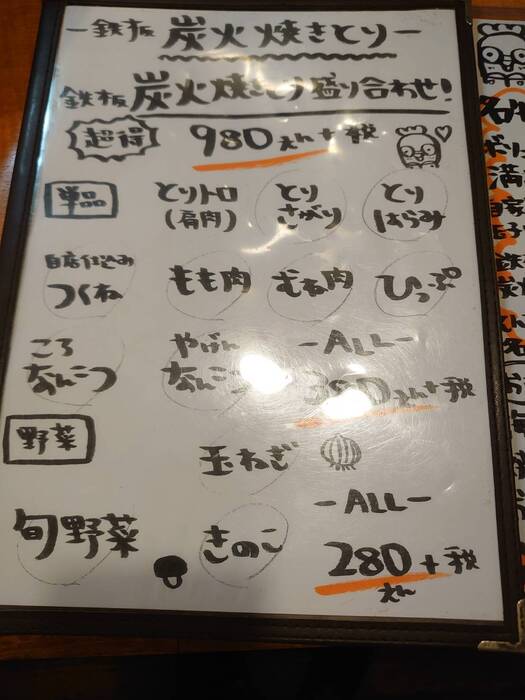 -鉄板 炭火焼きとり-
鉄板 炭火焼きとり盛り合わせ!
超得 980えん+税
単品 とりトロ とり とり
(肩肉) さがり はらみ
自店仕込み
つくね もも肉 むね肉 ひっぷ
ころ やげん -ALL-
なんこつ なんこつ 380えん+税
野菜 玉ねぎ
-ALL-
旬野菜 きのこ
280えん+税